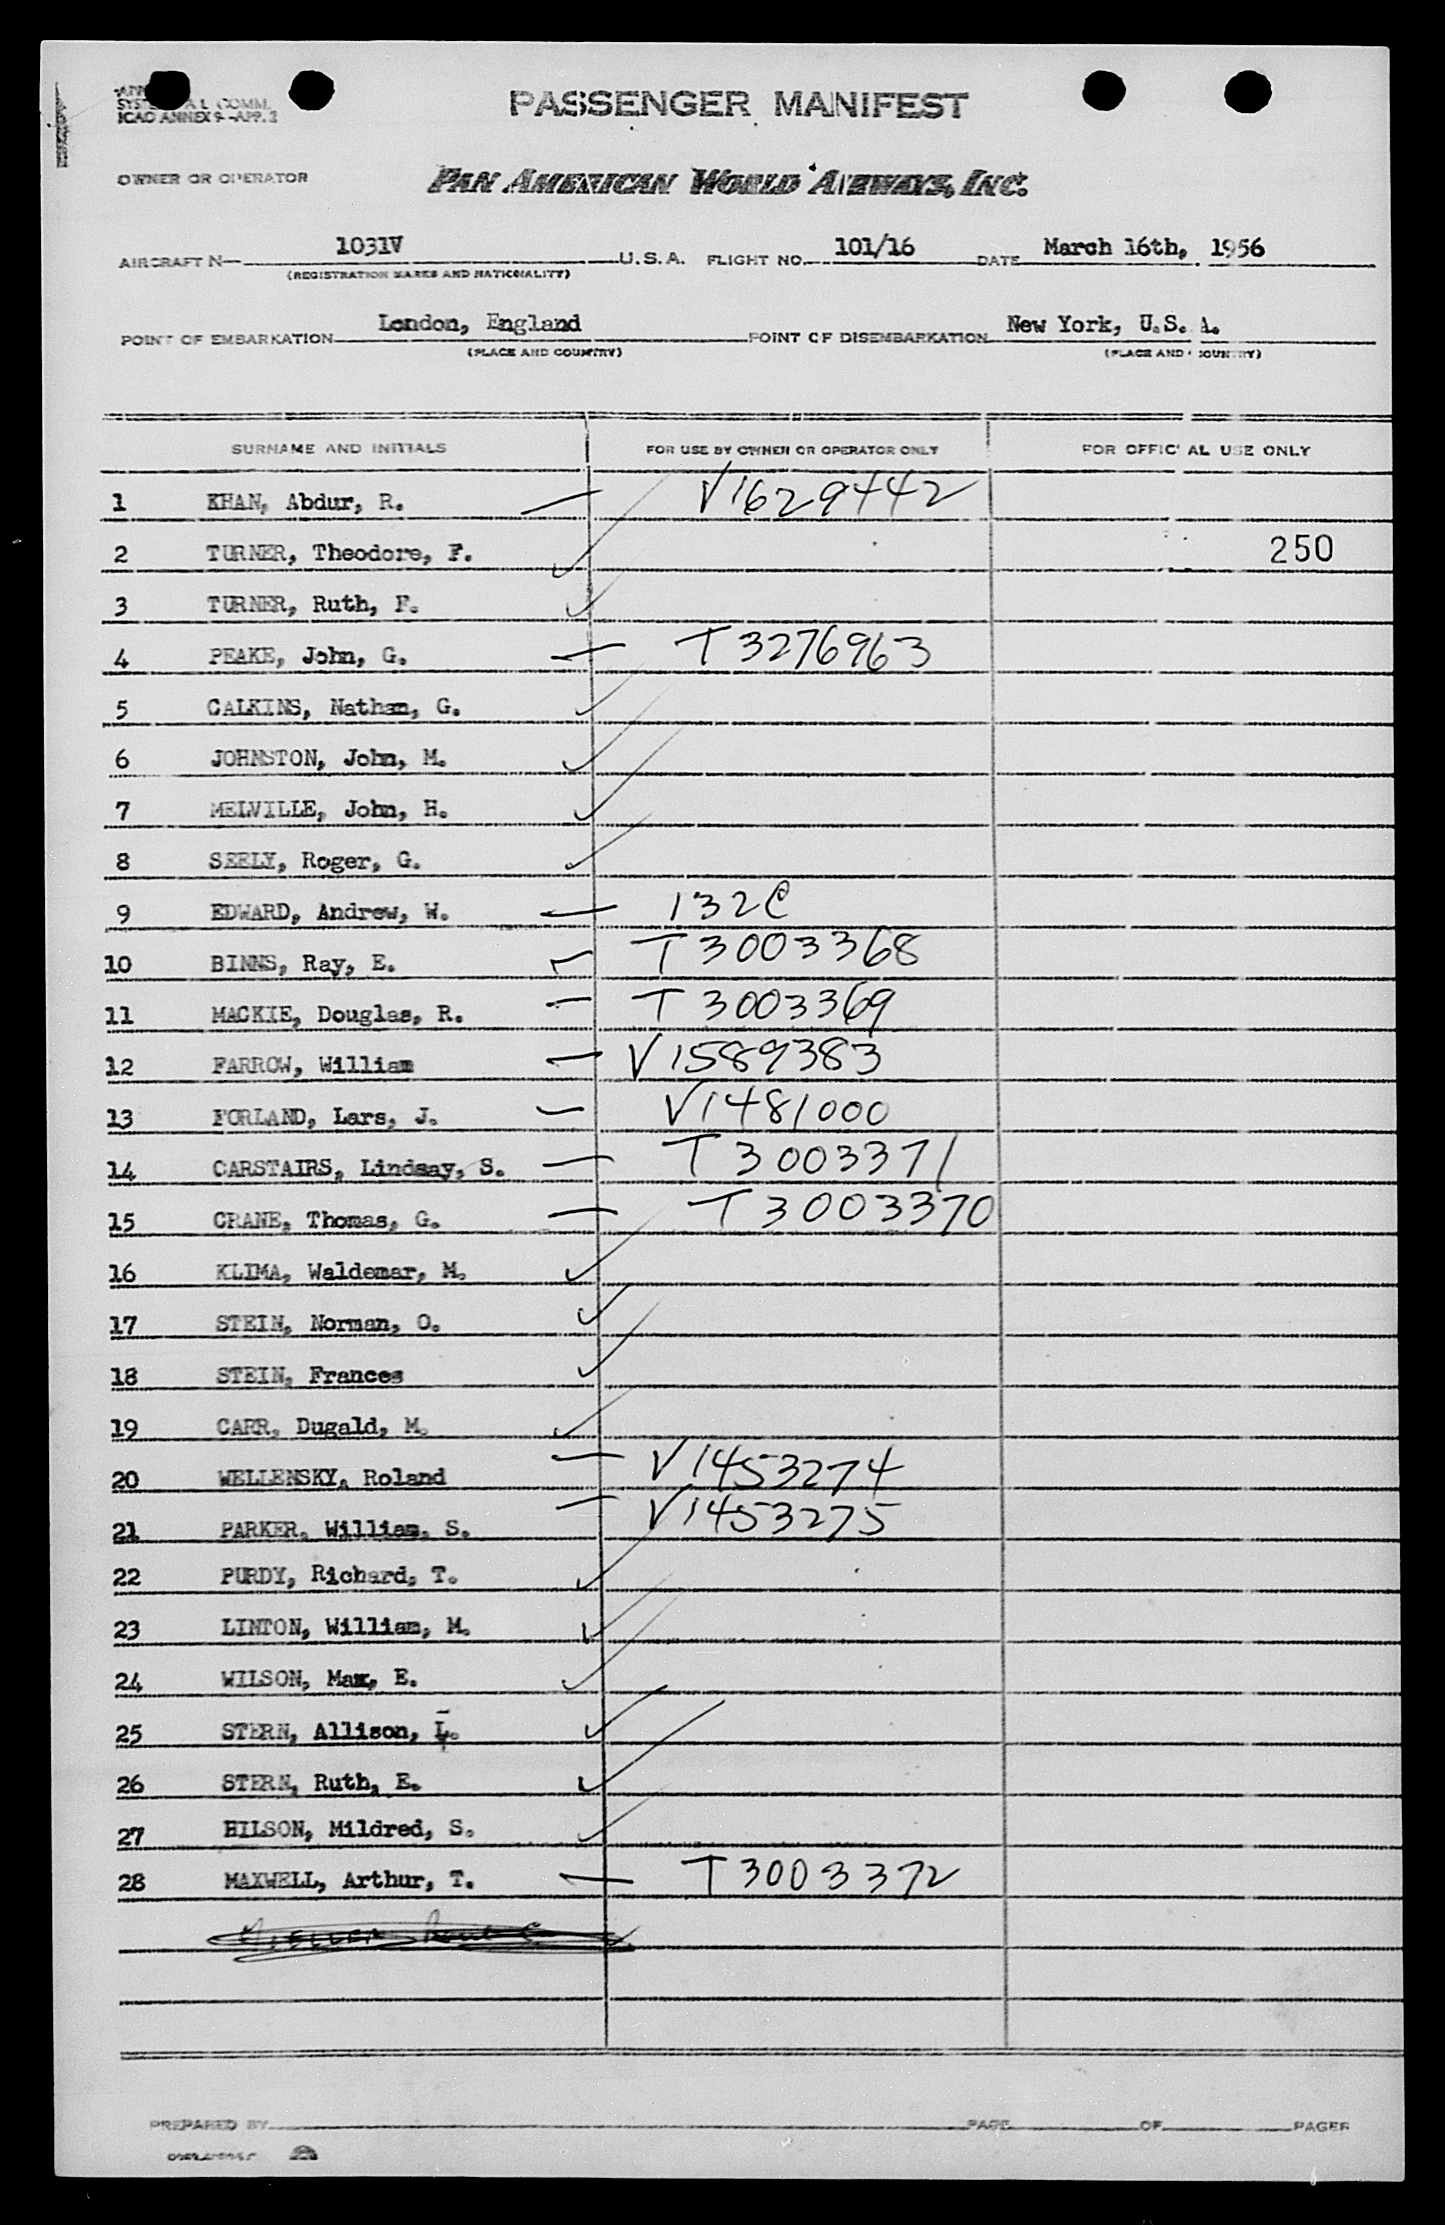 PASSENGER MANIFEST
ICAO ANNEX 9-APP. 2
OWNER OR OPERATOR PAN AMERICAN WORLD AIRWAYS, INC.
AIRCRAFT N— 1031V U.S.A. FLIGHT NO. 101/16 DATE March 16th, 1956
(REGISTRATION MARKS AND NATIONALITY)
POINT OF EMBARKATION London, England POINT OF DISEMBARKATION New York, U.S.A.
(PLACE AND COUNTRY) (PLACE AND COUNTRY)
SURNAME AND INITIALS FOR USE BY OWNER OR OPERATOR ONLY FOR OFFICIAL USE ONLY
1 KHAN, Abdur, R. — V1629442
2 TURNER, Theodore, F. ✓ 250
3 TURNER, Ruth, F. ✓
4 PEAKE, John, G. — T3276963
5 CALKINS, Nathan, G. ✓
6 JOHNSTON, John, M. ✓
7 MELVILLE, John, H. ✓
8 SEELY, Roger, G. ✓
9 EDWARD, Andrew, W. — 132C
10 BINNS, Ray, E. — T3003368
11 MACKIE, Douglas, R. — T3003369
12 FARROW, William — V1589383
13 FORLAND, Lars, J. — V1481000
14 CARSTAIRS, Lindsay, S. — T3003371
15 CRANE, Thomas, G. — T3003370
16 KLIMA, Waldemar, M. ✓
17 STEIN, Norman, O. ✓
18 STEIN, Frances ✓
19 CARR, Dugald, M. ✓
20 WELLENSKY, Roland — V1453274
21 PARKER, William, S. — V1453275
22 PURDY, Richard, T. ✓
23 LINTON, William, M. ✓
24 WILSON, Max, E. ✓
25 STERN, Allison, L. ✓
26 STERN, Ruth, E. ✓
27 HILSON, Mildred, S. ✓
28 MAXWELL, Arthur, T. — T3003372
PREPARED BY PAGE OF PAGES